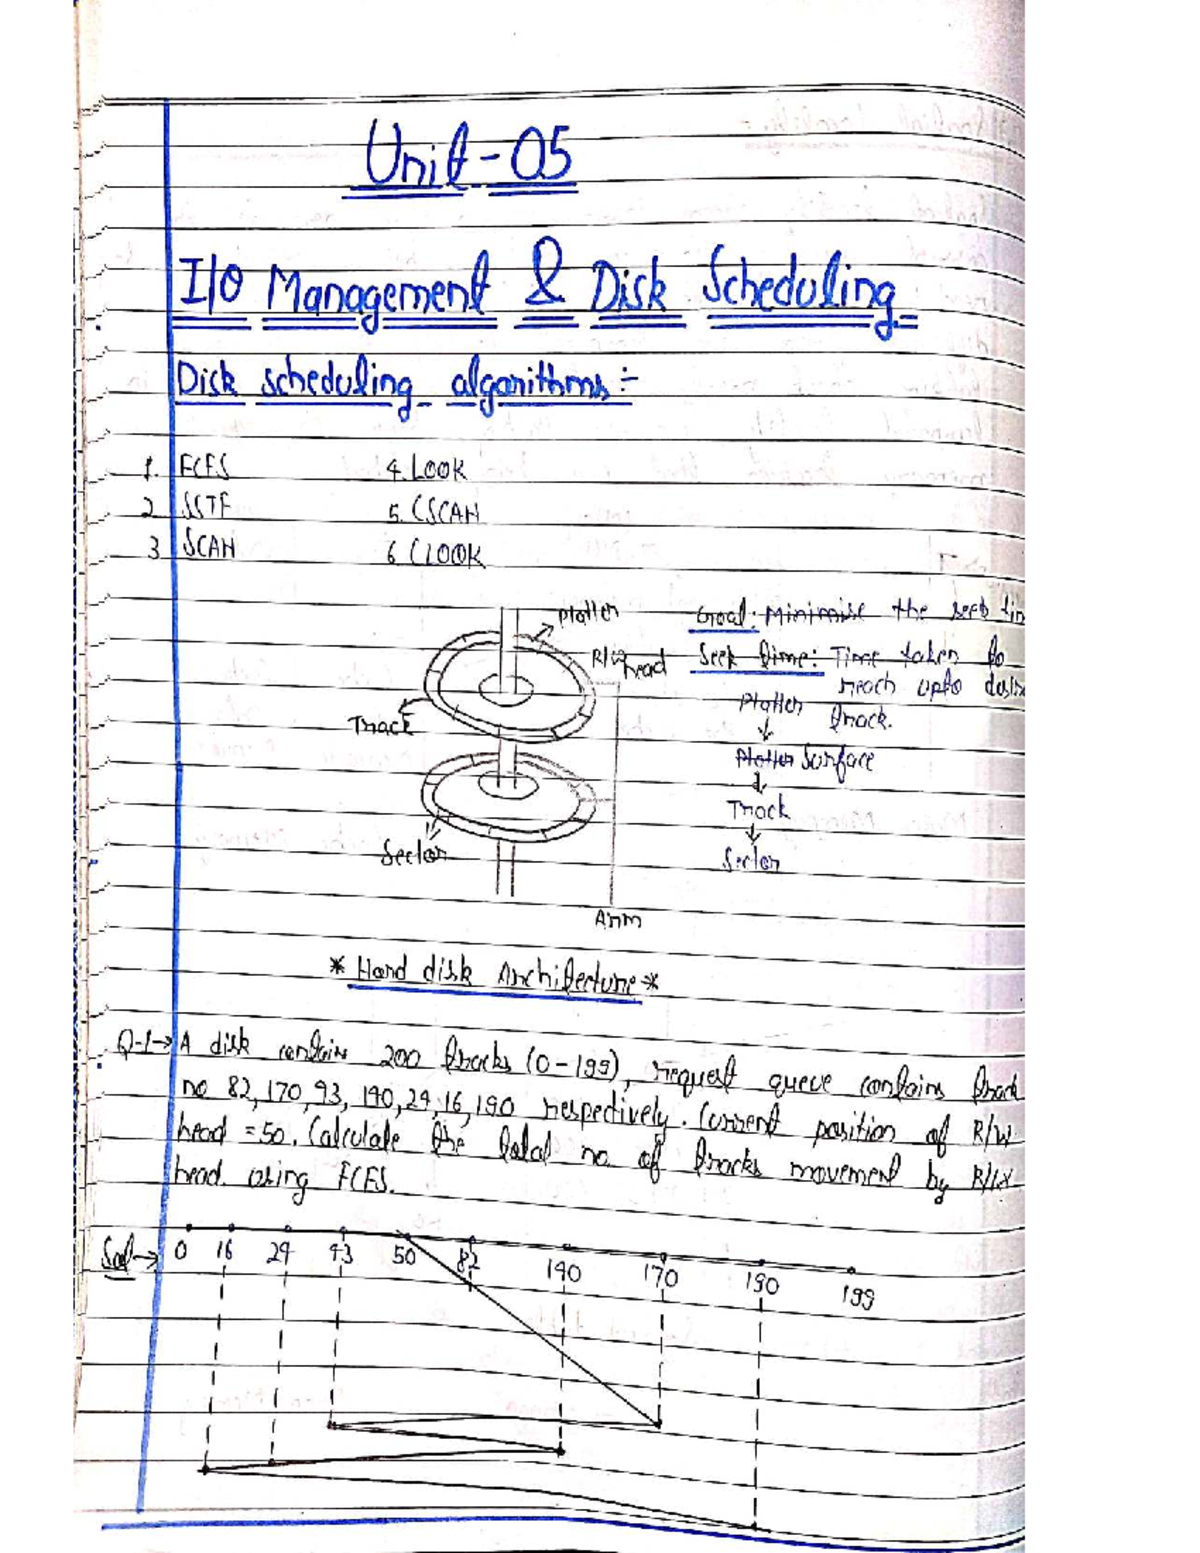 Unit-05
I/O Management & Disk Scheduling
Disk scheduling algorithms:-
1. FCFS 4. LOOK
2 SSTF 5. CSCAN
3 SCAN 6 CLOOK
Platter
Goal: Minimise the seek tim
R/W head
Seek time: Time taken to
reach upto desire
track.
Track
Platter
↓
Platter Surface
↓
Track
↓
Sector
Sector
Arm
* Hard disk Architecture *
Q-1→ A disk contains 200 tracks (0-199), request queue contains track
no 82, 170, 43, 140, 24, 16, 190 respectively. Current position of R/W
head = 50. Calculate the total no. of tracks movement by R/W
head using FCFS.
Sol→ 0 16 24 43 50 82 140 170 190 199